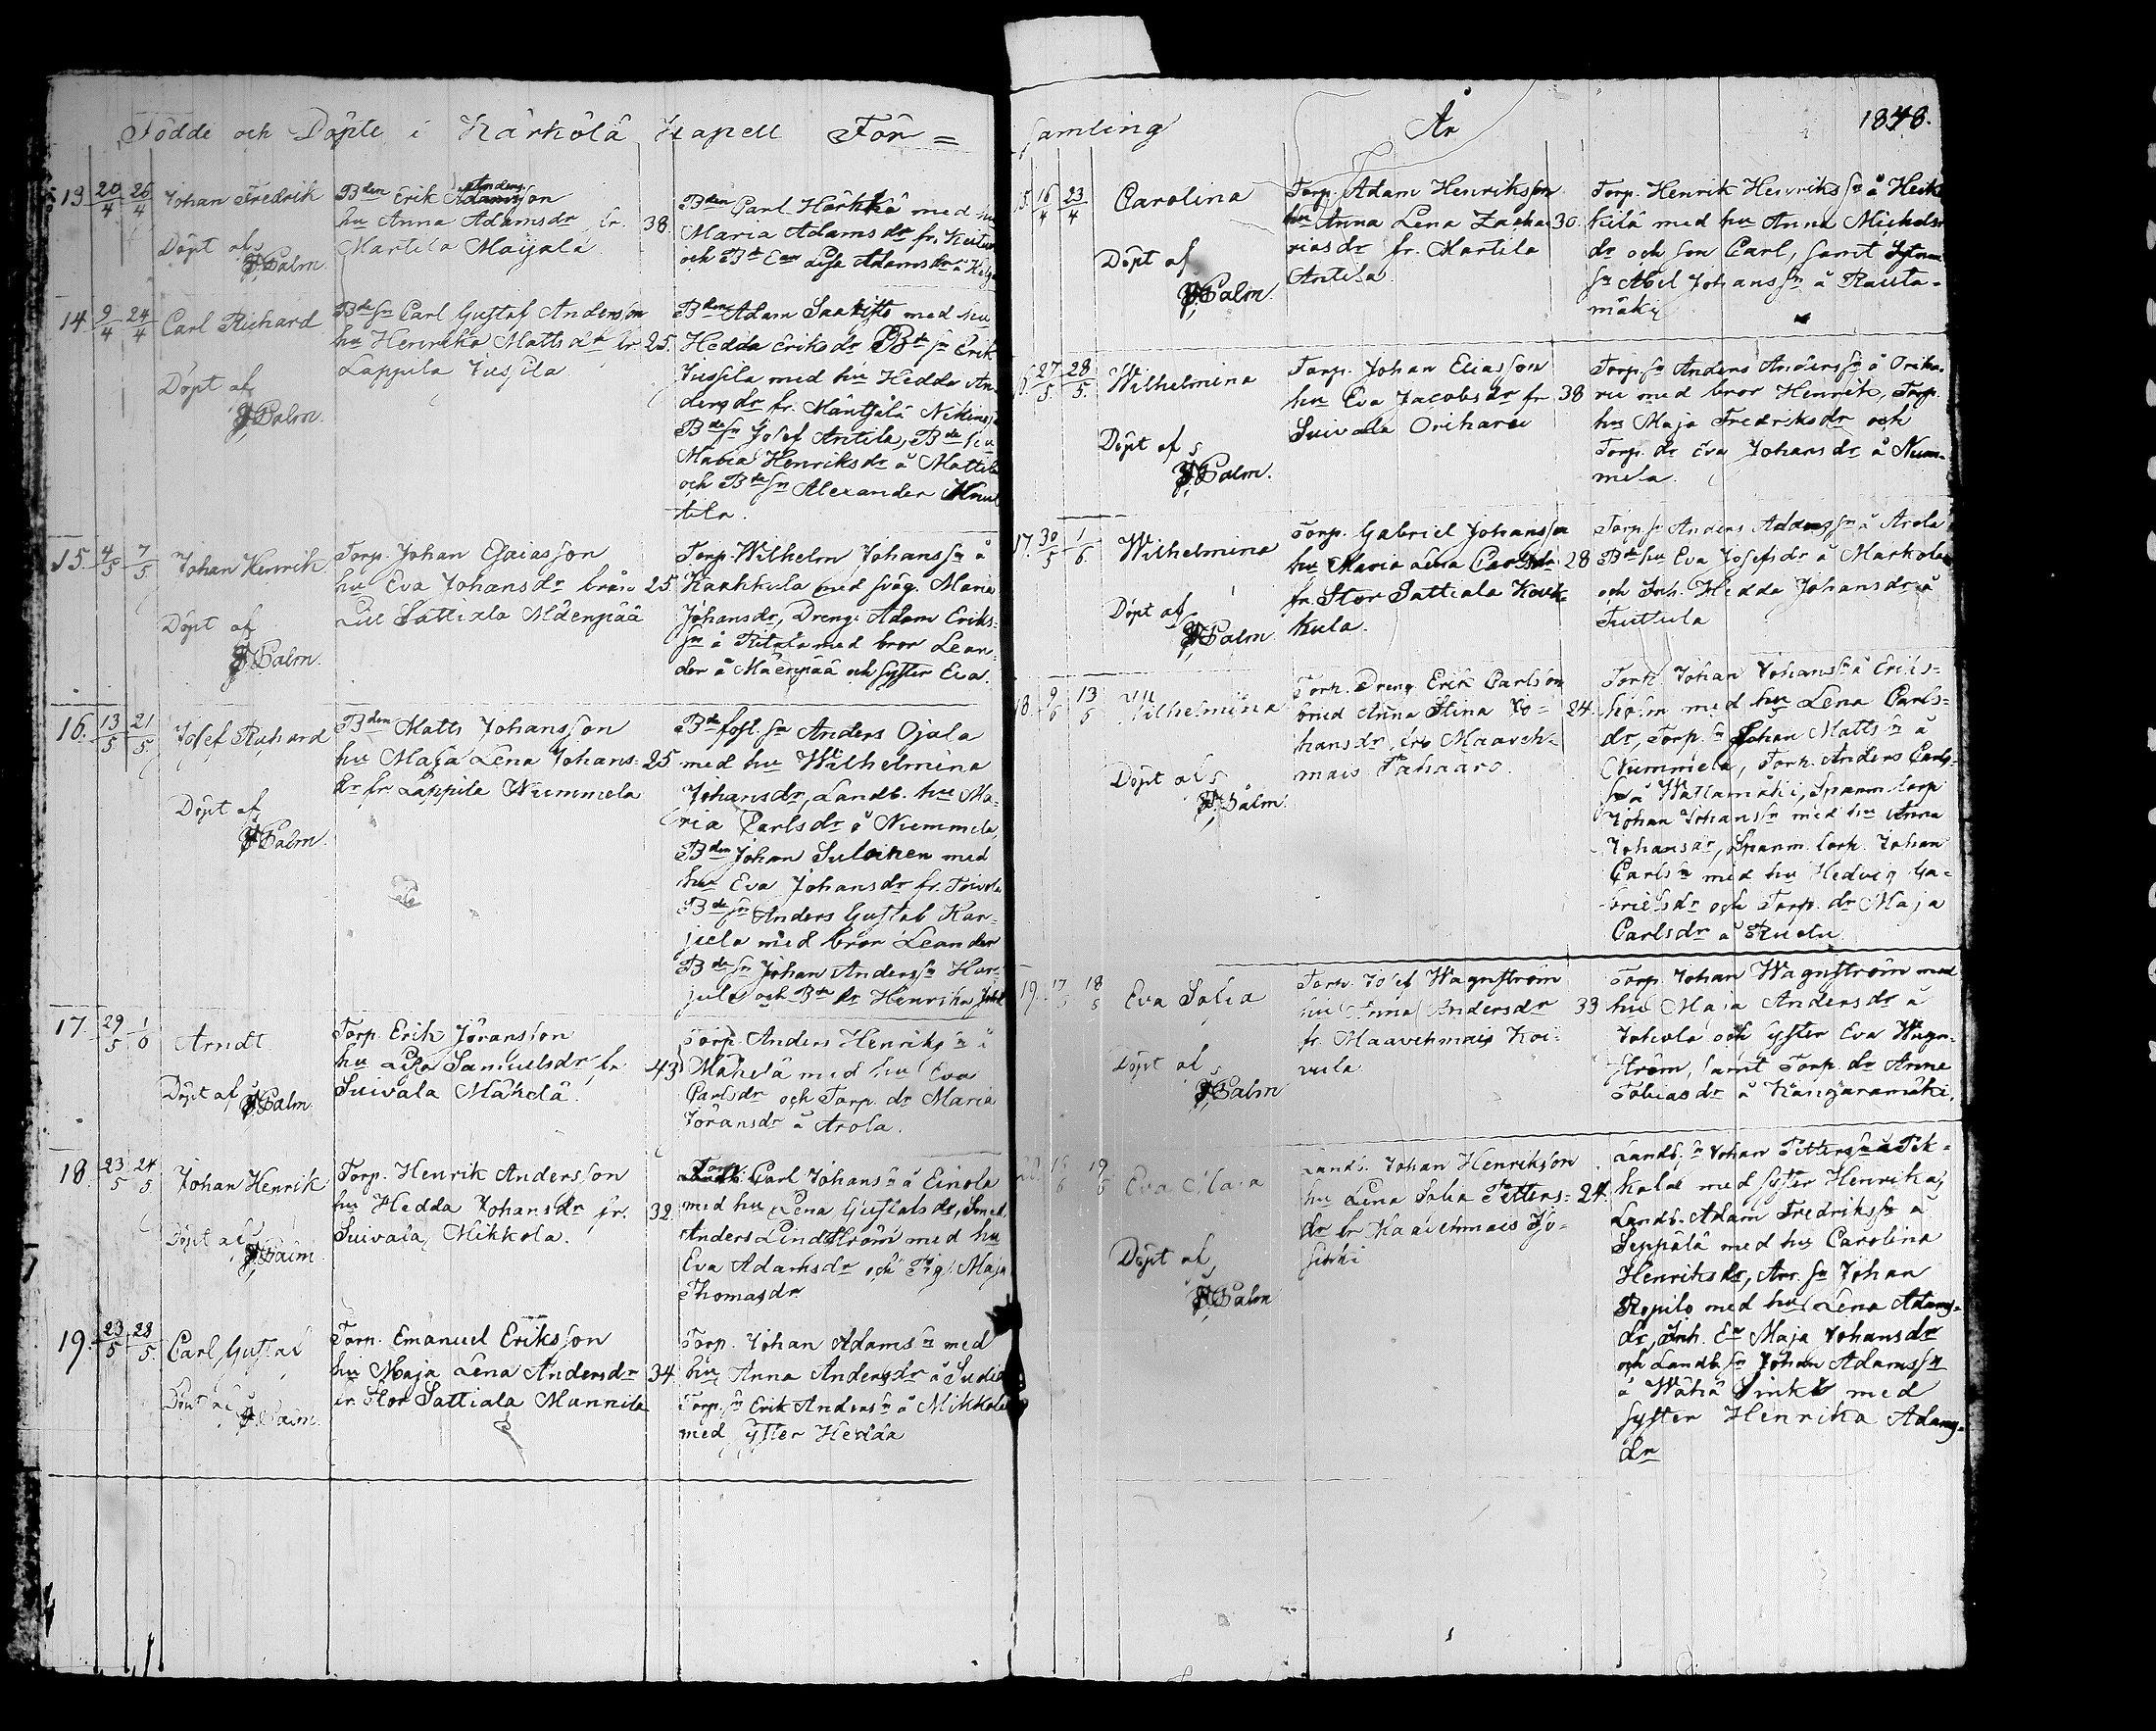 Födde och Döpte i Kärkölä Kapell För=
13. 20/4 26/4 Johan Fredrik
Döpt af
J. Palm.
Bden Erik Anders
Adamsson
hu Anna Adamsdr fr.
Martela Maijala
38.
Bden Carl Harkkä med hu
Maria Adamsdr fr.
och Bde Lisa Adamsdr å
14. 9/4 24/4 Carl Richard
Döpt af
J. Palm.
Bdesn Carl Gustaf Andersson
hu Henrika Mattsdr fr.
Lappila Jussila
25.
Bden Adam Saakisto med hu
Hedda Eriksdr Bdesn Erik
Jussila med hu Hedda An
dersdr fr. Mäntsälä
Bdesn Josef Antila, Bde hu
Maria Henriksdr å Mattila
och Bdesn Alexander Knuu
tila.
15. 4/5 7/5 Johan Henrik
Döpt af
J. Palm.
Torp. Johan Esaiasson
hu Eva Johansdr från
Lill Sattiala Mäenpää
25.
Torp. Wilhelm Johanssn å
Kaakkula med swäg. Maria
Johansdr, Dreng. Adam Eriks=
sn å med bror Lean=
der å Mäenpää och syster Eva.
16. 13/5 21/5 Josef Richard
Döpt af
J. Palm.
Bden Matts Johansson
hu Maja Lena Johans=
dr fr. Lappila Nummela
25
Bde sn Anders Ojala
med hu Wilhelmina
Johansdr, Landb. hu Ma=
ria Carlsdr å Nummela,
Bden Johan Suloinen med
hu Eva Johansdr fr. Toivola
Bdesn Anders Gustaf Har=
jula med bror Leander
Bdesn Johan Anderssn Har=
jula och Bde dr Henrika
17. 29/5 1/6 Arndt
Döpt af
J. Palm.
Torp. Erik Jöransson
hu Lisa Samuelsdr fr.
Suivala Mäkelä.
43
Torp. Anders Henrikssn å
Mäkelä med hu Eva
Carlsdr och Torp. dr Maria
Jöransdr å Arola.
18. 23/5 24/5 Johan Henrik
Döpt af
J. Palm
Torp. Henrik Andersson
hu Hedda Johansdr fr.
Suivala, Mikkola.
32.
Torp.
Landb. Carl Johanssn å Einola
med hu Lena Gustafsdr, Smed.
Anders Lindström med hu
Eva Adamsdr och Pig. Maja
Thomasdr
19. 23/5 28/5 Carl Gustaf
Döpt af
J. Palm.
Torp. Emanuel Eriksson
hu Maja Lena Andersdr
fr Stor Sattiala Mannila
34.
Torp. Johan Adamssn med
hu Anna Andersdr å
Torp. sn Erik Anderssn å Mikkola
med syster Hedda
samling År 1848.
15. 16/4 23/4 Carolina
Döpt af
J. Palm.
Torp. Adam Henriksson
hu Anna Lena Zacha=
riasdr fr. Martila
Antila.
30.
Torp. Henrik Henrikssn å Heik
kilä med hu Anna Michels
dr och son Carl, samt
sn Abel Johanssn å Rauta=
mäki
16. 27/5 28/5 Wilhelmina
Döpt af
J. Palm.
Torp. Johan Eliasson
hu Eva Jacobsdr fr
Suivala Oriharu
38
Torp. sn Anders Anderssn å Oriha=
ru med bror Henrik, Torp.
hu Maja Fredriksdr och
Torp. dr Eva Johansdr å Num=
mela.
17. 30/5 1/6 Wilhelmina
Döpt af
J. Palm
Torp. Gabriel Johansson
hu Maria Lena Carlsdr
fr. Stor Sattiala Kauk=
kula.
28
Torp. sn Anders Adamssn å Arola
Bde hu Eva Josefsdr å Markola
och Inh. Hedda Johansdr å
Tuttula
18. 9/6 13/6 Wilhelmina
Döpt af
J. Palm
Torp. Dreng Erik Carlsson
med Anna Stina Jo=
hansdr, fr. Maaveh=
mais Pahaaro.
24.
Torp. Johan Johanssn å Eriks=
holm med hu Lena Carls=
dr, Torp. sn Johan Mattssn å
Nummela, Torp. Anders Carls=
sn å Wallamäki, Spanm. torp
Johan Johanssn med hu Anna
Johansdr, Spanm. torp. Johan
Carlssn med hu Hedvig Ga=
brielsdr och Torp. dr Maja
Carlsdr å
19. 17/5 18/5 Eva Sofia
Döpt af
J. Palm
Torp. Josef Wagnström
hu Anna Andersdr
fr. Maavehmais Koi=
vula
33
Torp. Johan Wagnström med
hu Maja Andersdr å
Jokola och syster Eva Wagn=
ström, samt Torp. dr Anna
Tobiasdr å Kangaramäki.
20. 18/6 19/6 Eva Maja
Döpt af
J. Palm
Landb. Johan Henriksson
hu Lena Sofia Petters=
dr fr Maavehmais
24.
Landb. sn Johan Petterssn å Pek=
kala med syster Henrika,
Landb. Adam Fredrikssn å
Seppälä med hu Carolina
Henriksdr, Arr. sn Johan
Ropilo med hu Lena Adams=
dr, Inh. Er Maja Johansdr
och Landb. sn Johan Adamssn
å Wähä Sinko med
syster Henrika Adams=
dr